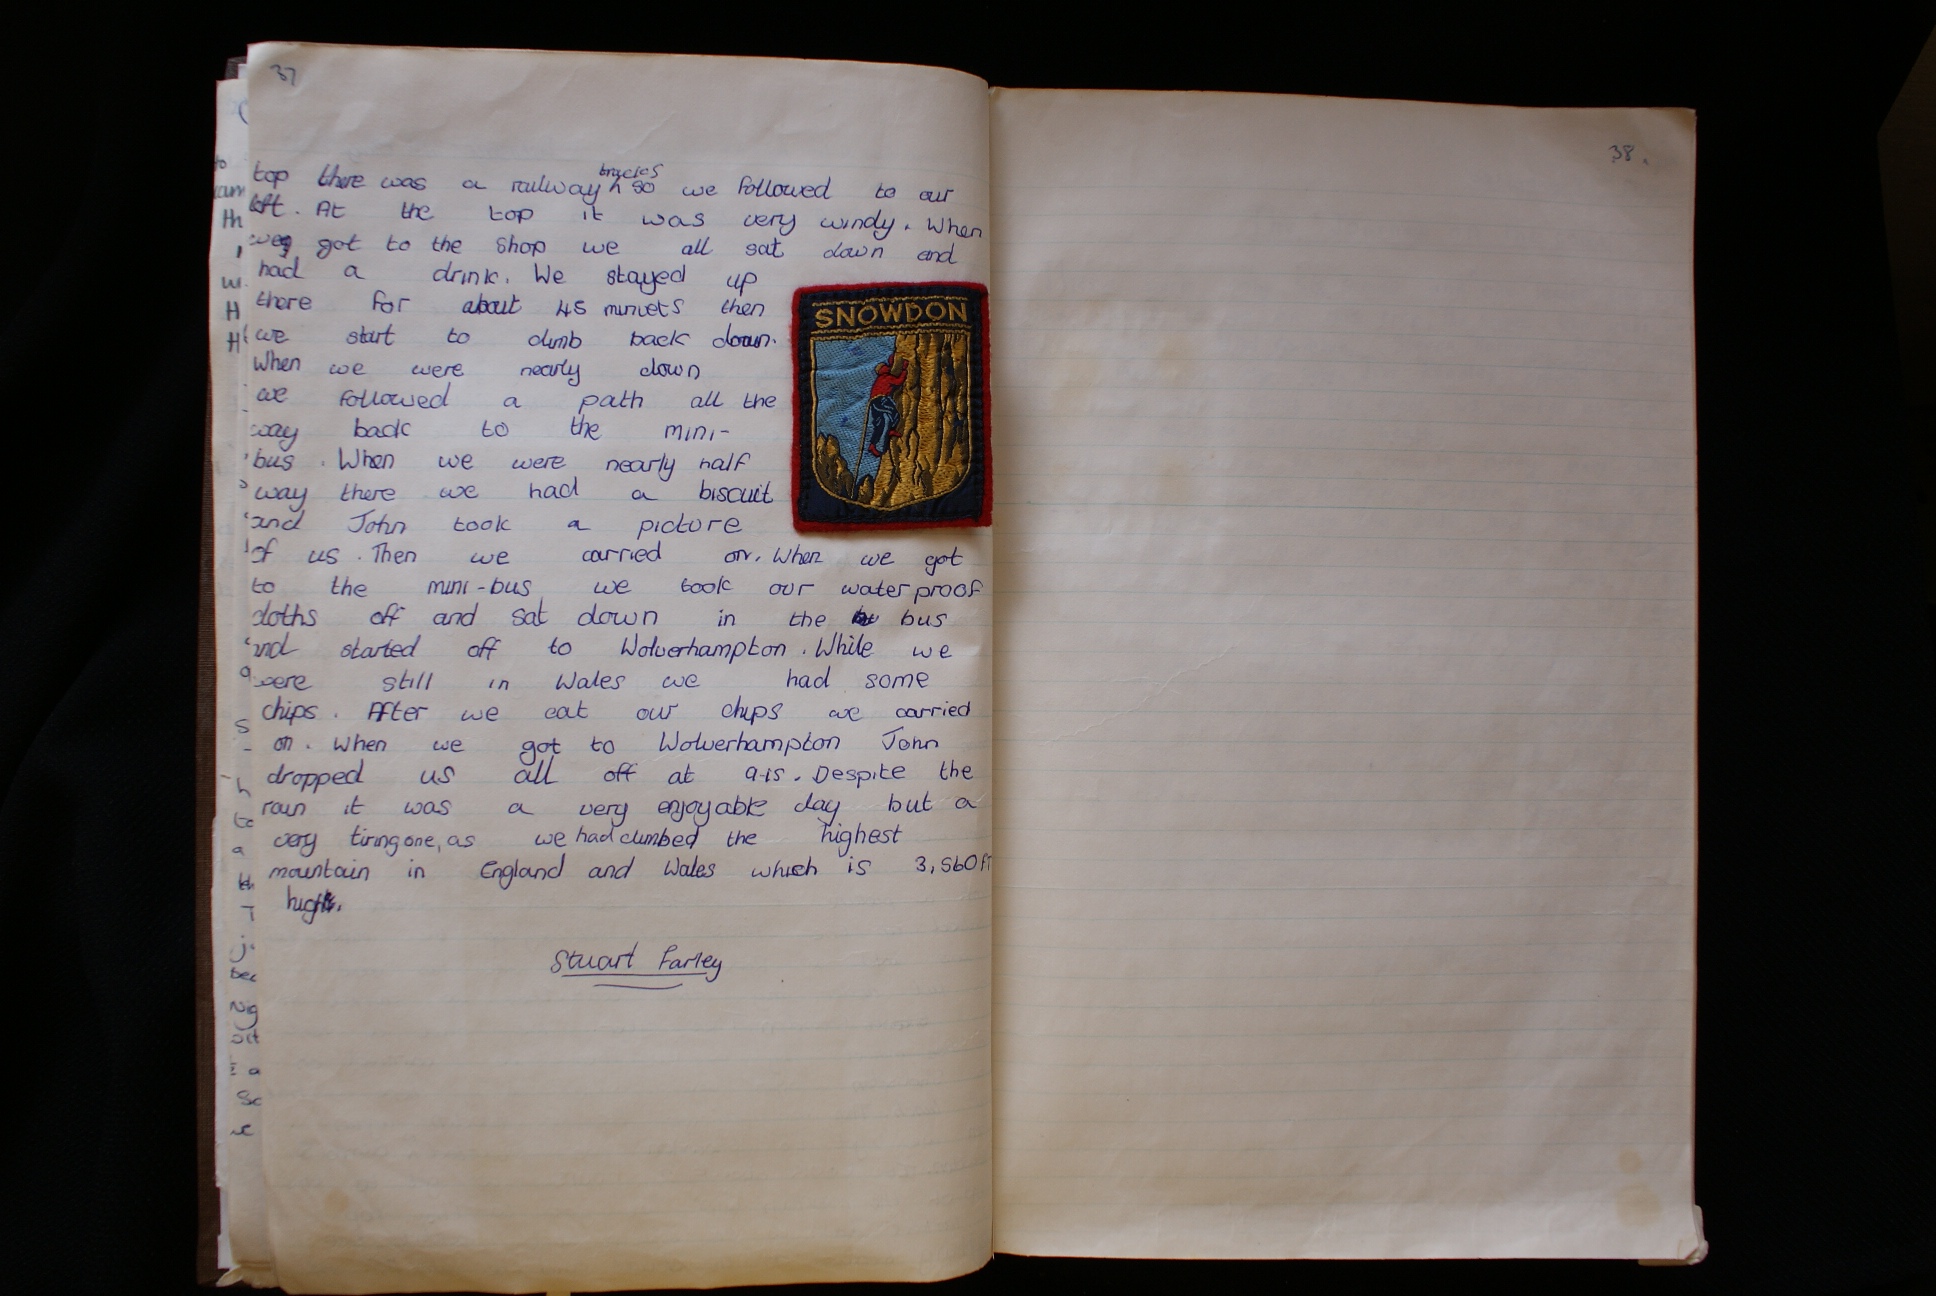 37
top there was a railway tracks so we followed to our
left. At the top it was very windy. When
we got to the shop we all sat down and
had a drink. We stayed up
there for about 45 miniets then
we start to climb back down.
When we were nearly down
we followed a path all the
way back to the mini-
bus. When we were nearly half
way there we had a biscuit
and John took a picture
of us. Then we carried on. When we got
to the mini-bus we took our waterproof
cloths off and sat down in the bus
and started off to Wolverhampton. While we
were still in Wales we had some
chips. After we eat our chips we carried
on. When we got to Wolverhampton John
dropped us all off at 9-15. Despite the
rain it was a very enjoyable day but a
very tiring one, as we had climbed the highest
mountain in England and Wales which is 3,560ft
high.
Stuart Farley
SNOWDON
38.